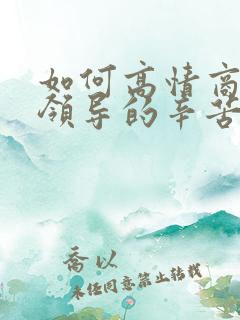 如何高情商
领导的辛苦
乔以
未经同意禁止转载